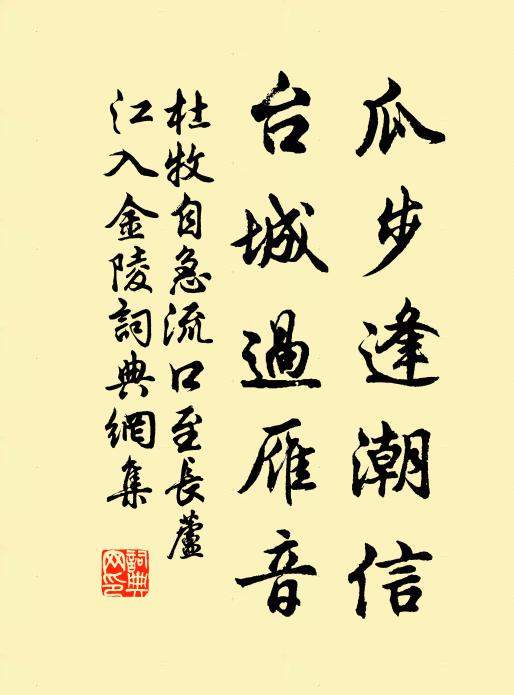 瓜步逢潮信
台城過雁音
杜牧自急流口至長蘆
江入金陵詞典網集
詞典
网印